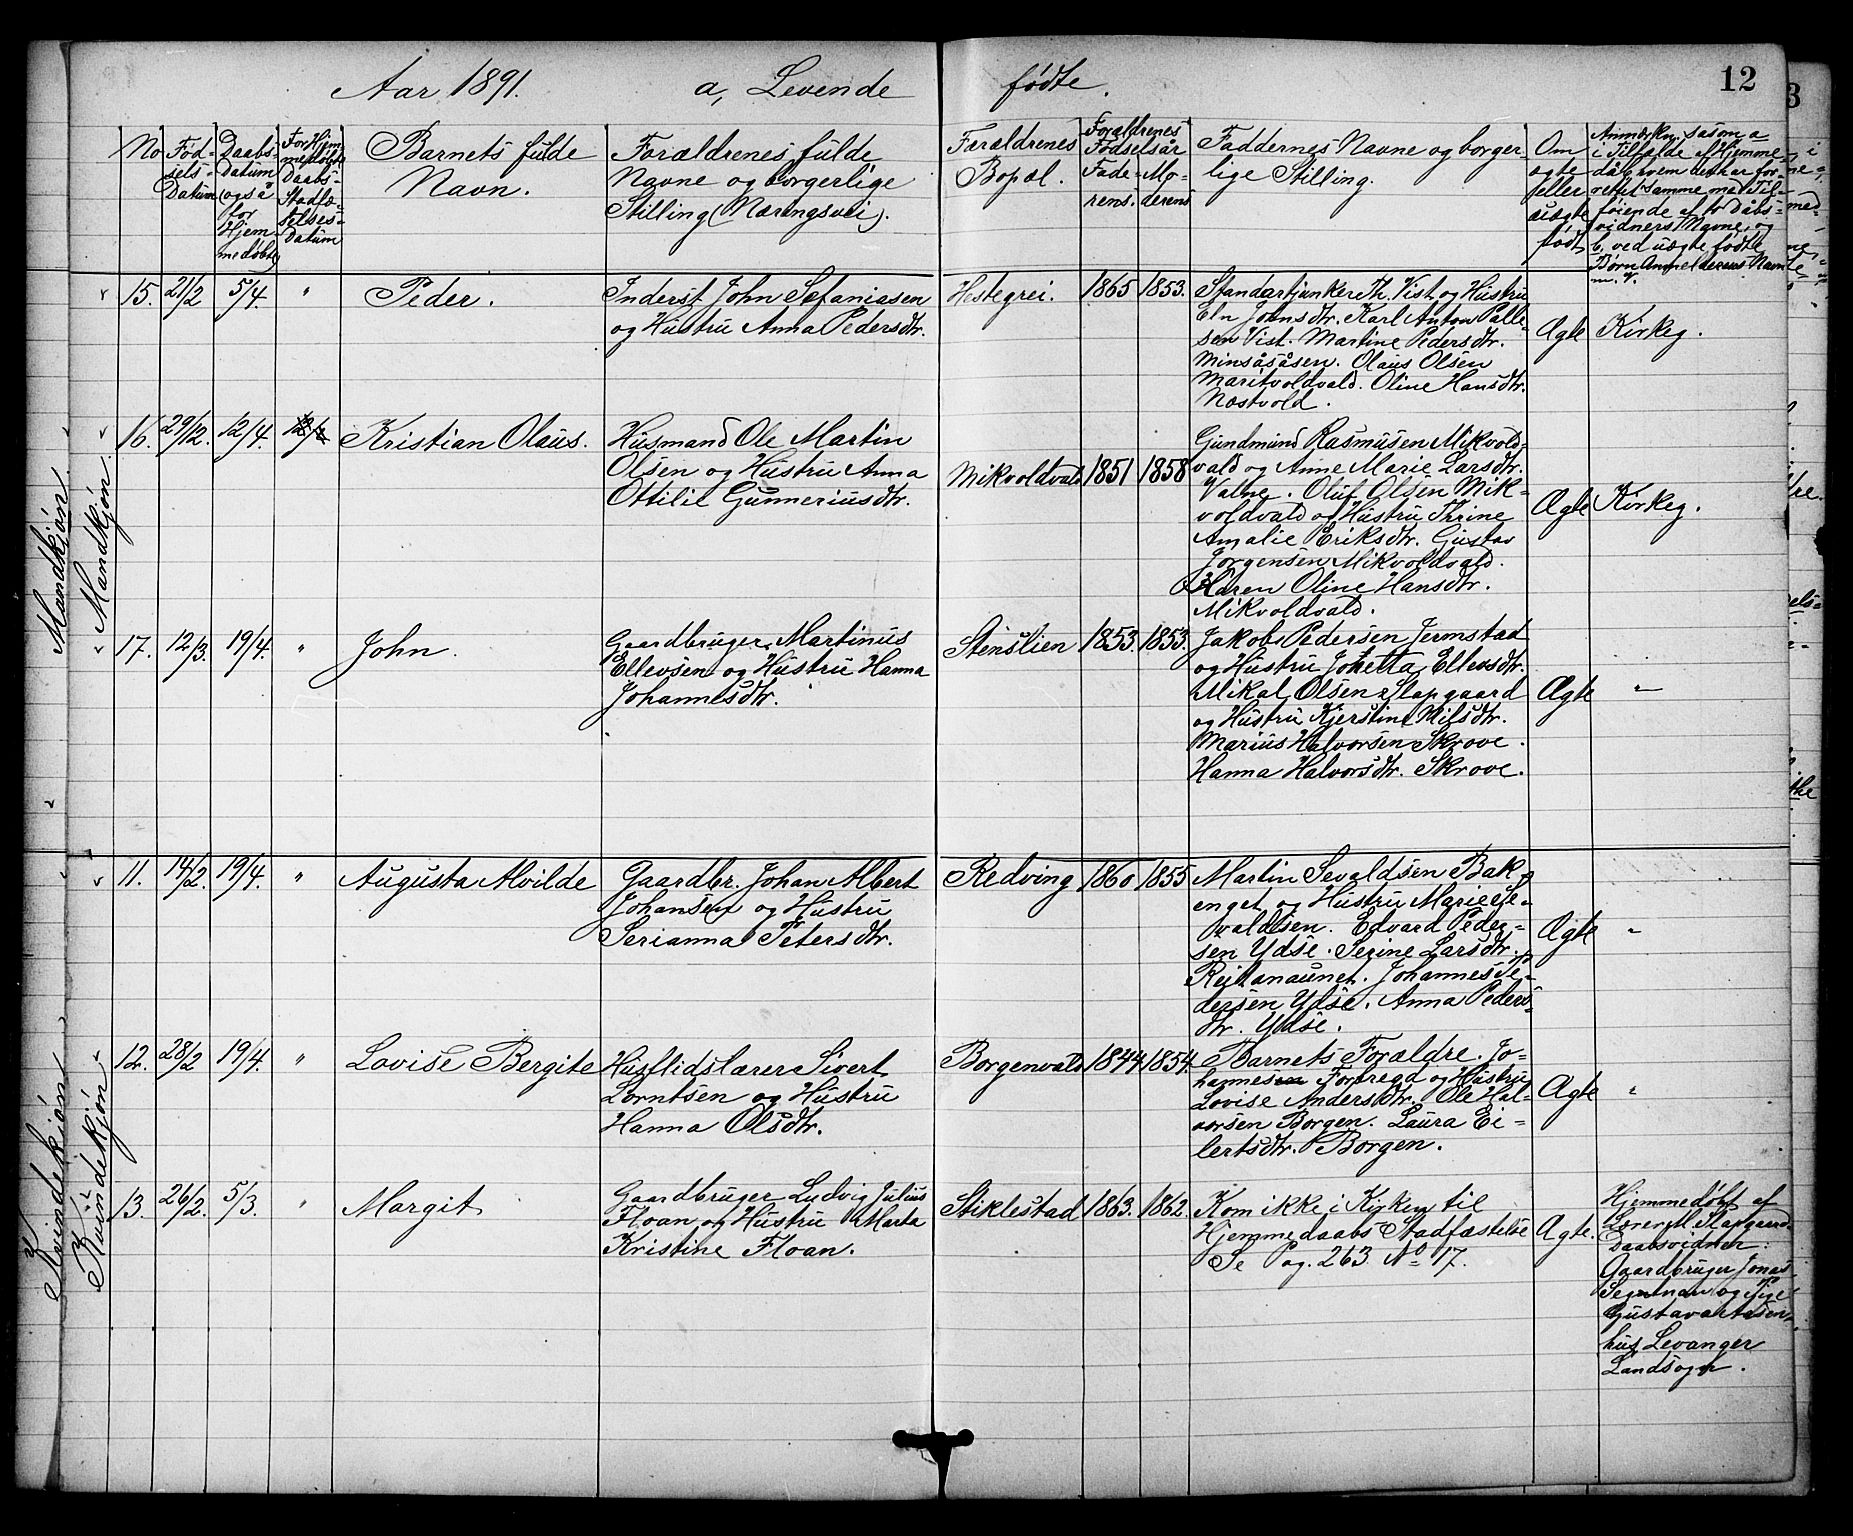 Aar 1891. a, Levende fødte. 12
No
Fød-
sels-
Datum
Daabs-
Datum
(også
for
Hjem-
medøbte)
For Hjem-
medøbte
Daabs-
Stadfæ-
stelses-
Datum
Barnets fulde
Navn.
Forældrenes fulde
Navne og borgerlige
Stilling (Næringsvei).
Forældrenes
Bopæl.
Forældrenes
Fødselsår
Fade-
rens.
Mo-
derens
Faddernes Navne og borger-
lige Stilling.
Om
ægte
eller
uægte
født
Anmærkn. såsom a
i Tilfælde af Hjemme-
dåb hvem der har for-
rettet samme med Til-
føiende af to Dåbs-
vidners Navne, og
b. ved uægte fødte
Børn Anmelderens Navn
m. V.
Mandkjøn
Mandkjøn.
15. 21/2 5/4. " Peder.
Inderst John Sefaniasen
og Hustru Anna Pedersdtr.
Hestegrei. 1865 1853.
Standartjunker Th. Vist og Hustru
Eln Johnsdtr. Karl Anton Palle-
sen Vist. Martine Pedersdtr.
Minsåsåsen. Olaus Olsen
Maritvoldvald. Oline Hansdtr.
Næstvold.
Ægte Kirkeg.
16. 29/12. 12/4. Kristian Olaus.
Husmand Ole Martin
Olsen og Hustru Anna
Ottilie Gunneriusdtr.
Mikvoldvald 1851 1858
Gundmund Rasmusen Mikvold-
vald og Anne Marie Larsdtr.
Valne. Oluf Olsen Mik-
voldvald og Hustru Thrine
Amalie Eriksdtr. Gustav
Jørgensen Mikvoldvald.
Karen Oline Hansdtr.
Mikvoldvald.
Ægte Kirkeg.
17. 12/3. 19/4. " John.
Gaardbruger Martinus
Ellevsen og Hustru Hanna
Johannesdtr.
Stenslien 1853. 1853.
Jakob Pedersen Jermstad
og Hustru Johetta Ellevsdtr.
Mikal Olsen Slapgaard
og Hustru Kjerstine Nilsdtr.
Marius Halvorsen Skrove.
Hanna Halvorsdtr. Skrove.
Ægte "
Kvindekjøn
Kvindekjøn
11. 14/2. 19/4. " Augusta Alvilde
Gaardbr. Johan Albert
Johansen og Hustru
Serianna Petersdtr.
Redving 1860 1855
Martin Sevaldsen Bak-
enget og Hustru Marie Se-
valdsen. Edvard Peder-
sen Ydse. Serine Larsdtr.
Reitanaunet. Johannes Pe-
dersen Ydse. Anna Peders-
dtr. Ydse.
Ægte "
12. 28/2 19/4. " Lovise Bergite
Husflidslærer Sivert
Lorntsen og Hustru
Hanna Olsdtr.
Borgenvald 1844 1854.
Barnets Forældre. Jo-
hannes Fortregd og Hustru
Lovise Andersdtr. Ole Hal-
vorsen Borgen. Laura Ei-
lertsdtr. Borgen.
Ægte "
13. 26/2. 5/3. " Margit
Gaardbruger Ludvig Julius
Floan og Hustru Marta
Kristine Floan.
Stiklestad 1863. 1862.
Kom ikke i Kirken til
Hjemmedaabs Stadfæstelse
Se Pag. 263 No 17.
Ægte.
Hjemmedøbt af
Lærer M. Slapgaard.
Daabsvidner:
Gaardbruger Jonas
og Pige
Gustava Aasen-
hus Levanger
Landsogn.